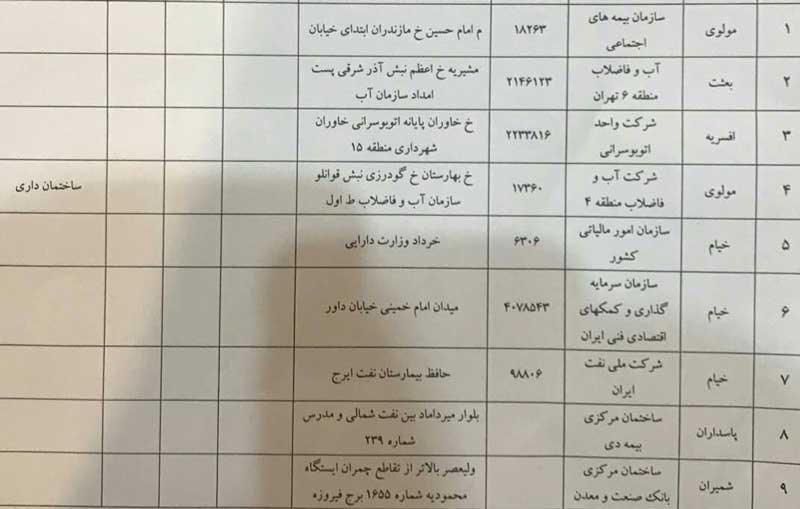 ۱ مولوی سازمان بیمه های اجتماعی ۱۸۲۶۳ م امام حسین خ مازندران ابتدای خیابان
۲ بعثت آب و فاضلاب منطقه ۶ تهران ۲۱۴۶۱۲۳ مشیریه خ اعظم نبش آذر شرقی پست امداد سازمان آب
۳ افسریه شرکت واحد اتوبوسرانی ۲۲۳۳۸۱۶ خ خاوران پایانه اتوبوسرانی خاوران شهرداری منطقه ۱۵
۴ مولوی شرکت آب و فاضلاب منطقه ۴ ۱۷۳۶۰ خ بهارستان خ گودرزی نبش قوانلو سازمان آب و فاضلاب ط اول ساختمان داری
۵ خیام سازمان امور مالیاتی کشور ۶۳۰۶ خرداد وزارت دارایی
۶ خیام سازمان سرمایه گذاری و کمکهای اقتصادی فنی ایران ۴۰۷۸۵۴۳ میدان امام خمینی خیابان داور
۷ خیام شرکت ملی نفت ایران ۹۸۸۰۶ حافظ بیمارستان نفت ایرج
۸ پاسداران ساختمان مرکزی بیمه دی بلوار میرداماد بین نفت شمالی و مدرس شماره ۲۳۹
۹ شمیران ساختمان مرکزی بانک صنعت و معدن ولیعصر بالاتر از تقاطع چمران ایستگاه محمودیه شماره ۱۶۵۵ برج فیروزه